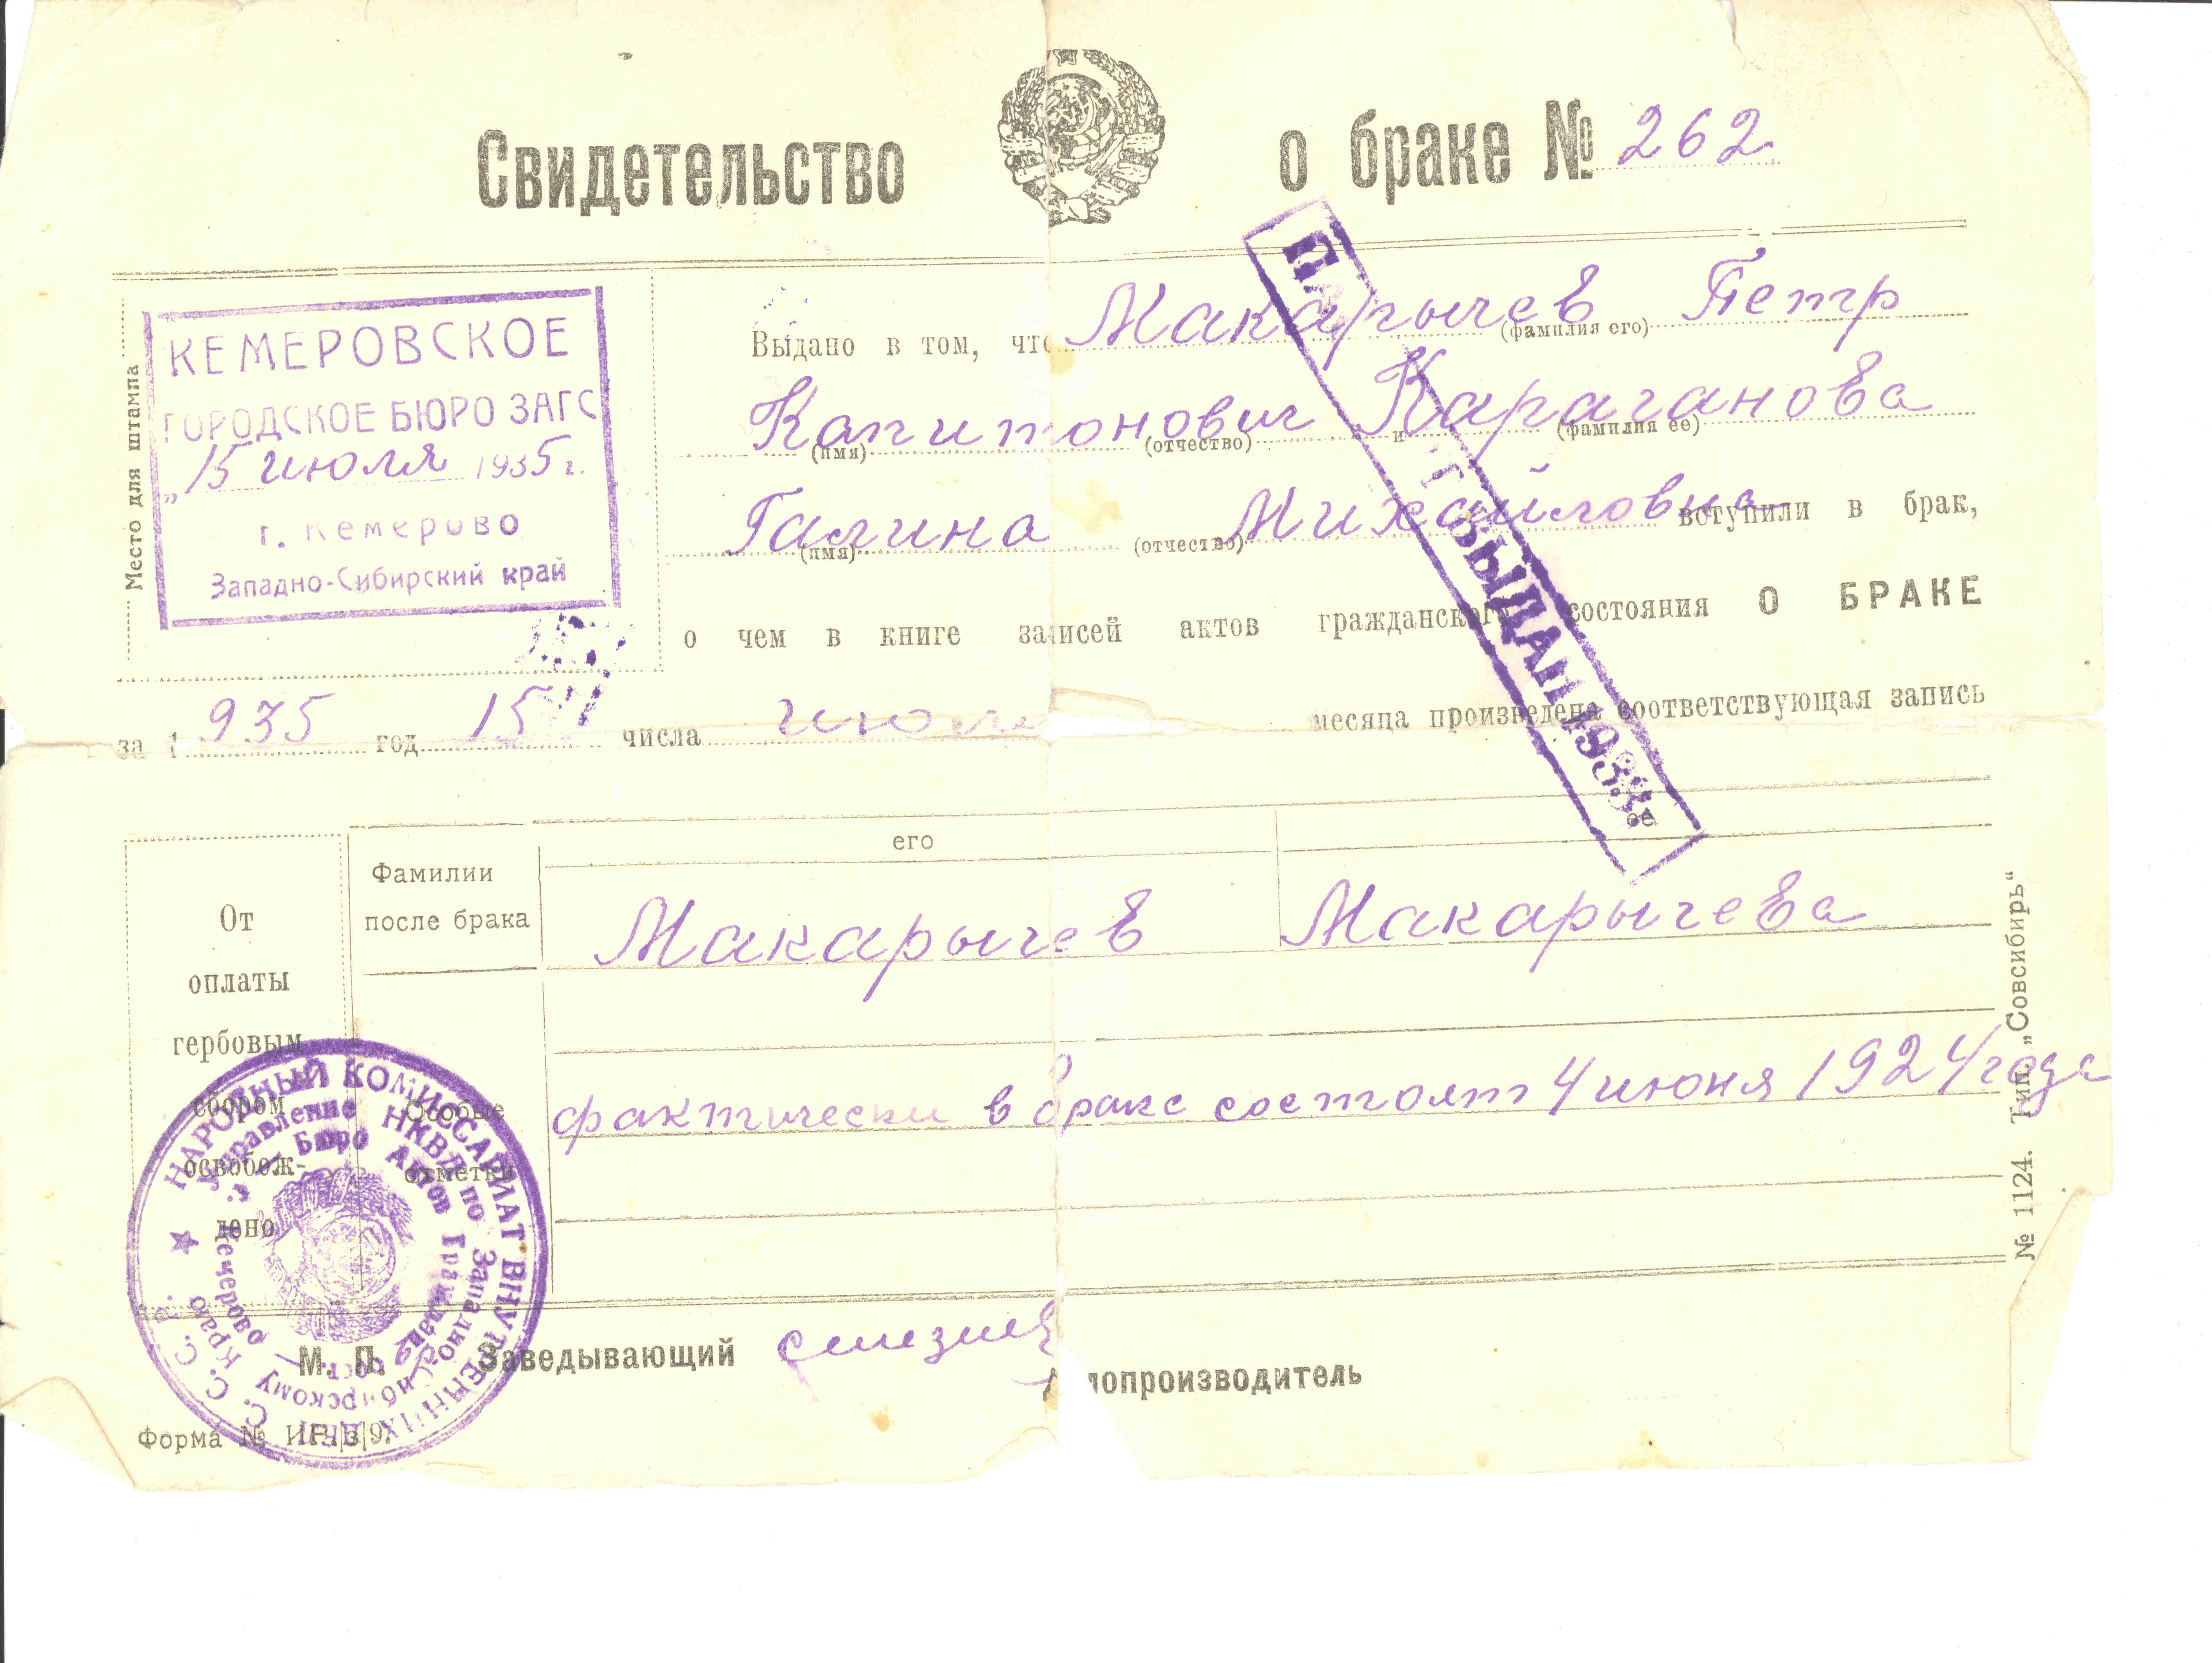 Свидетельство о браке № 262
Место для штампа
КЕМЕРОВСКОЕ
ГОРОДСКОЕ БЮРО ЗАГС
„15 июля 1935 г.
г. Кемерово
Западно-Сибирский край
Выдано в том, что Макарычев Петр
(фамилия его)
Капитонович и Караганова
(имя) (отчество) (фамилия ее)
Галина Михайловна вступили в брак,
(имя) (отчество)
о чем в книге записей актов гражданского состояния О БРАКЕ
за 1935 год 15 числа июля месяца произведена соответствующая запись
ВЫДАН 193
От оплаты гербовым сбором освобождено
Фамилии после брака
его
ее
Макарычев Макарычева
Особые отметки
фактически в браке состоят 4 июня 1924 года
НАРОДНЫЙ КОМИССАРИАТ ВНУТРЕННИХ ДЕЛ С. С. С. Р.
Управление НКВД по Западно-Сибирскому Краю
Бюро Актов Граждан.
М. П. Заведывающий
Делопроизводитель
Форма №
№ 1124. Тип. „Совсибирь“